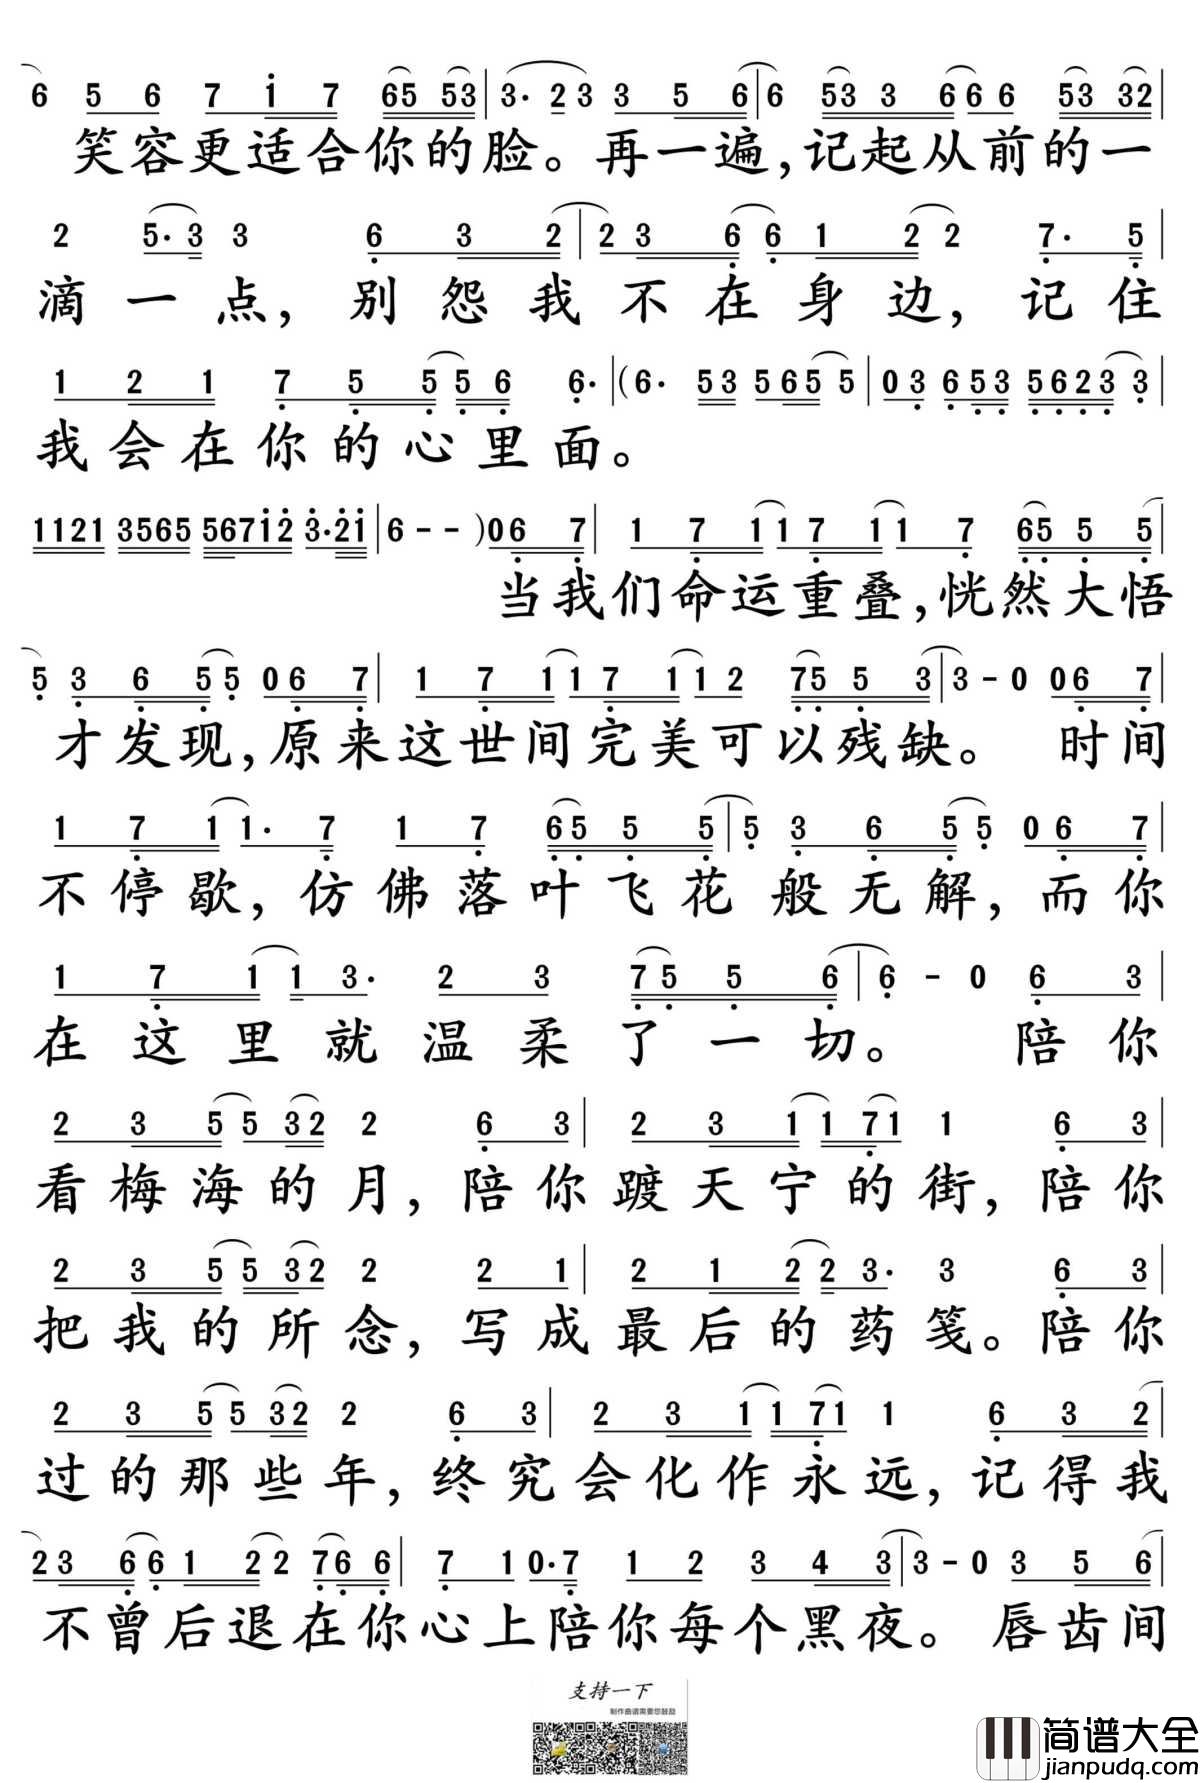 6 5 6 7 1 7 65 53 | 3. 2 3 3 5 6 | 6 53 3 6 6 6 53 32 |
笑容更适合你的脸。再一遍,记起从前的一
2 5. 3 3 6 3 2 | 2 3 6 6 1 2 2 7. 5 |
滴一点,别怨我不在身边,记住
1 2 1 7 5 5 5 6 6. | (6. 53 565 5 | 0 3 6 53 5623 3 |
我会在你的心里面。
1121 3565 5671 2 3. 21 | 6 - - )0 6 7 | 1 7 1 1 7 1 1 7 65 5 5 |
当我们命运重叠,恍然大悟
5 3 6 5 5 0 6 7 | 1 7 1 1 7 1 1 2 75 5 3 | 3 - 0 0 6 7 |
才发现,原来这世间完美可以残缺。时间
1 7 1 1. 7 1 7 65 5 5 | 5 3 6 5 5 0 6 7 |
不停歇,仿佛落叶飞花般无解,而你
1 7 1 1 3. 2 3 75 5 6 | 6 - 0 6 3 |
在这里就温柔了一切。陪你
2 3 5 5 32 2 6 3 | 2 3 1 1 71 1 6 3 |
看梅海的月,陪你踱天宁的街,陪你
2 3 5 5 32 2 2 1 | 2 1 2 2 3. 3 6 3 |
把我的所念,写成最后的药笺。陪你
2 3 5 5 32 2 6 3 | 2 3 1 1 71 1 6 3 2 |
过的那些年,终究会化作永远,记得我
2 3 6 6 1 2 2 7 6 6 | 7 1 0. 7 1 2 3 4 3 | 3 - 0 3 5 6 |
不曾后退在你心上陪你每个黑夜。唇齿间
支持一下
制作曲谱需要您鼓励
简谱大全
jianpudq.com